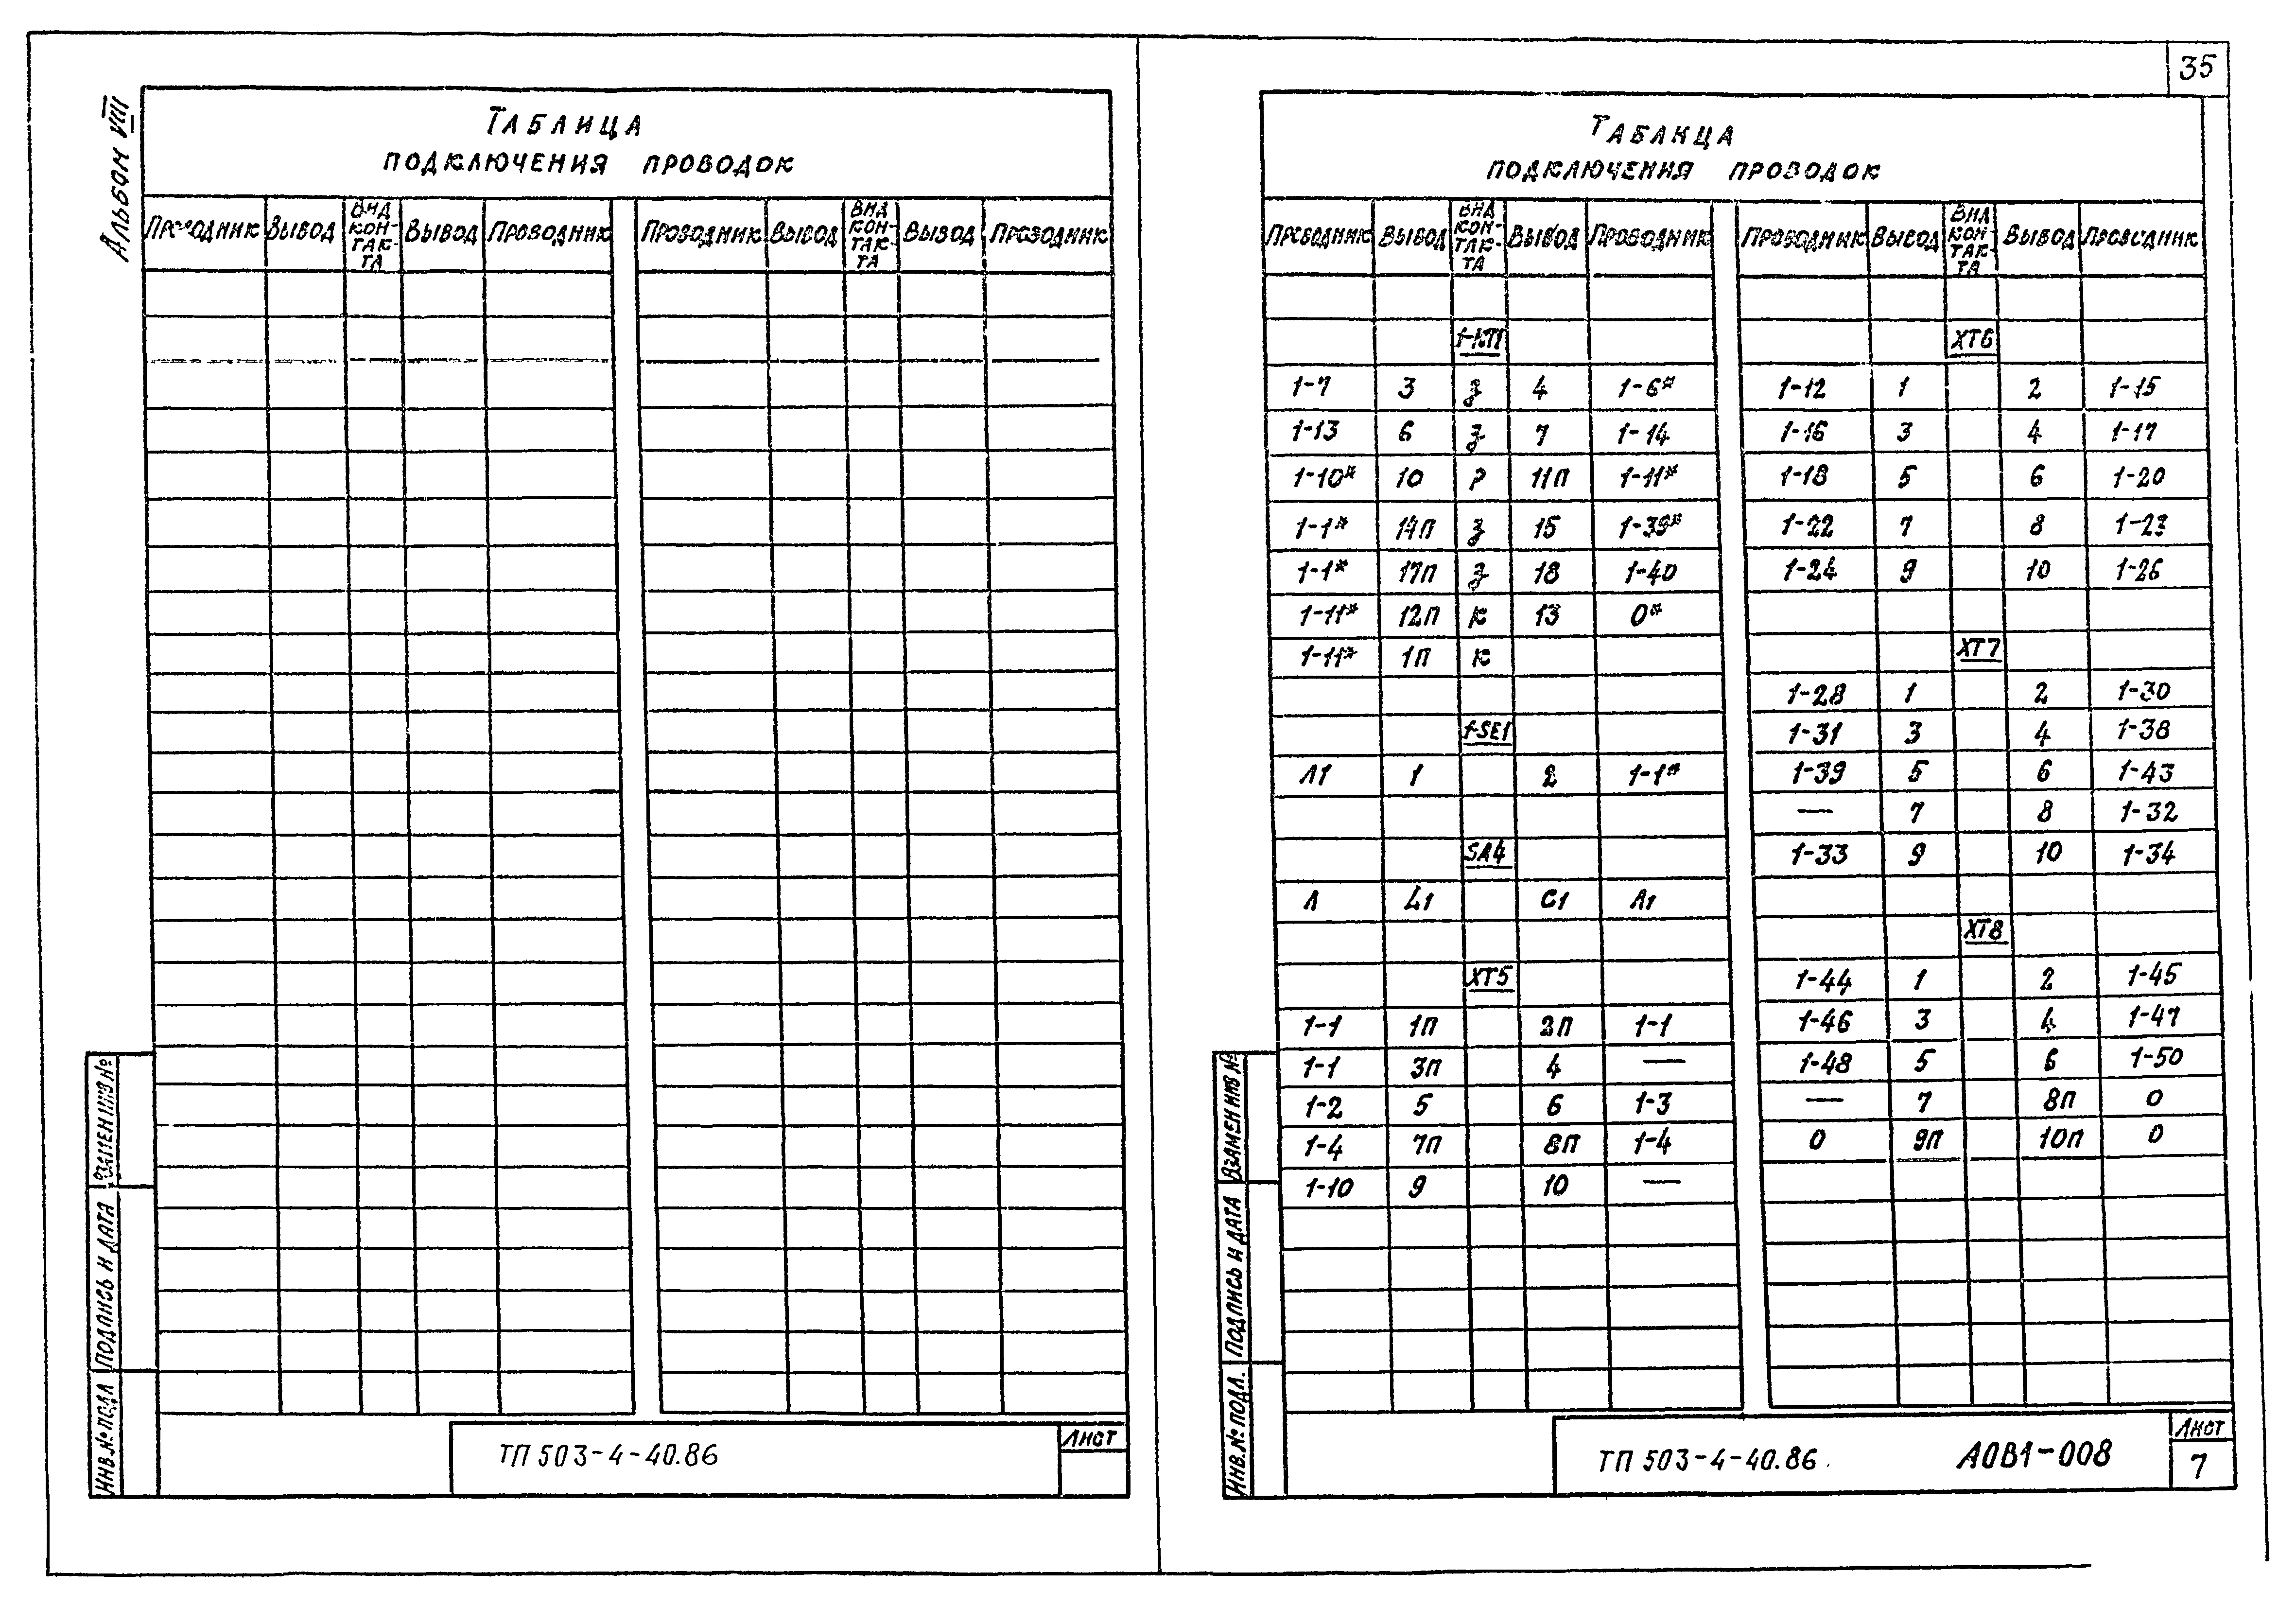 35
Альбом VIII
Таблица
подключения проводок
Проводник Вывод Вид кон-так-та Вывод Проводник Проводник Вывод Вид кон-так-та Вывод Проводник
Взамен инв. №
Подпись и дата
Инв. № подл
ТП 503-4-40.86
Лист
Таблица
подключения проводок
Проводник Вывод Вид кон-так-та Вывод Проводник Проводник Вывод Вид кон-так-та Вывод Проводник
1-КТ1
1-7 3 з 4 1-6*
1-13 6 з 7 1-14
1-10* 10 Р 11П 1-11*
1-1* 14П з 15 1-39*
1-1* 17П з 18 1-40
1-11* 12П К 13 0*
1-11* 1П К
1-SE1
Л1 1 2 1-1*
SA4
Л L1 С1 Л1
ХТ5
1-1 1П 2П 1-1
1-1 3П 4 —
1-2 5 6 1-3
1-4 7П 8П 1-4
1-10 9 10 —
ХТ6
1-12 1 2 1-15
1-16 3 4 1-17
1-18 5 6 1-20
1-22 7 8 1-23
1-24 9 10 1-26
ХТ7
1-28 1 2 1-30
1-31 3 4 1-38
1-39 5 6 1-43
— 7 8 1-32
1-33 9 10 1-34
ХТ8
1-44 1 2 1-45
1-46 3 4 1-47
1-48 5 6 1-50
— 7 8П 0
0 9П 10П 0
Взамен инв №
Подпись и дата
Инв. № подл.
ТП 503-4-40.86. АОВ1-008
Лист
7